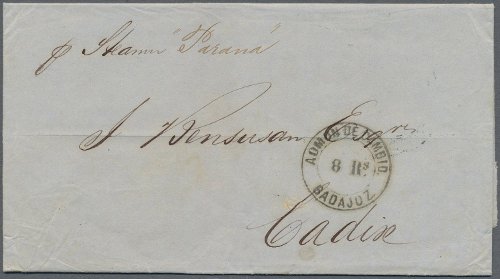 p Steamer "Parana"
J Bensusan Esqre
ADMON DE CAMBIO.
8 Rs
BADAJOZ.
Cadix